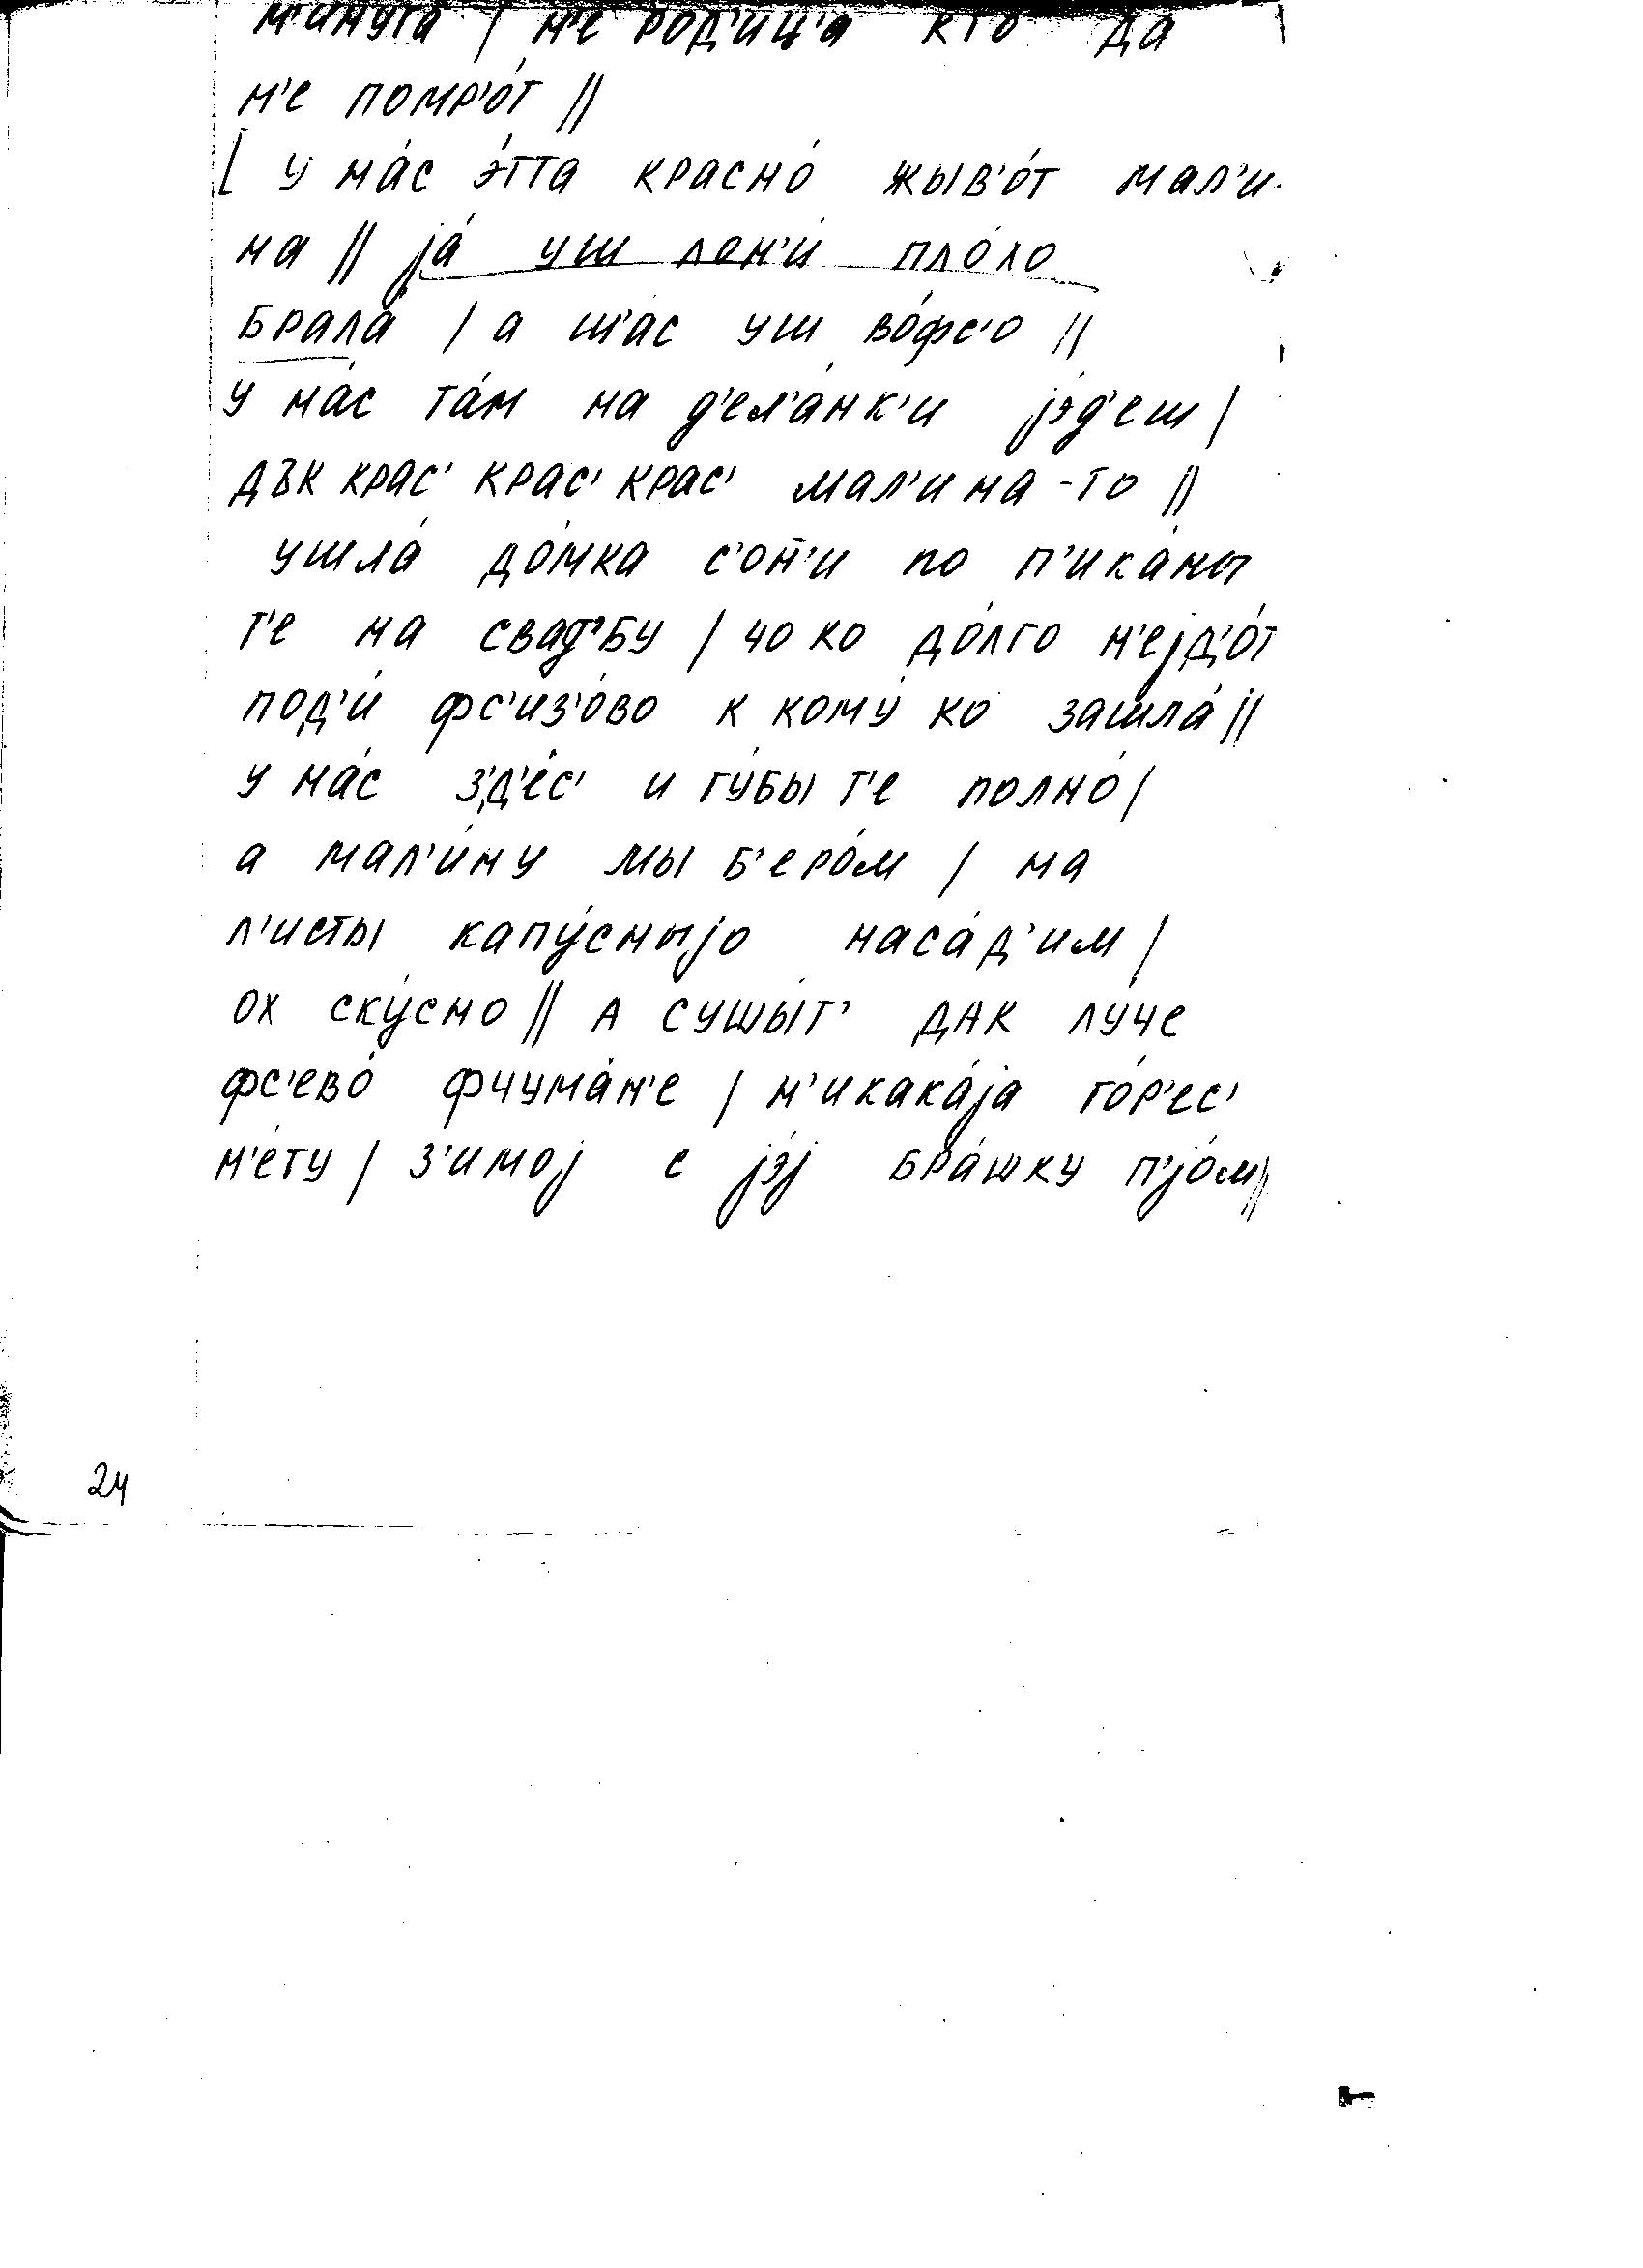 м'инута / н'е род'иц'а кто да
н'е помр'о́т //
[ у на́с э́тта красно́ жыв'о́т мал'и-
на // jа́ уш лон'и́ пло́хо
брала́ / а ш'ас уш во́фс'о //
у на́с та́м на д'ел'а́нк'и jэд'еш /
дък крас' крас' крас' мал'ина-то //
ушла́ до́мка с'он'и по п'ика́ны
т'е на свад'бу / чо ко до́лго н'еjд'о́т
под'и́ фс'из'о́во к кому́ ко зашла́ //
у на́с з'д'е́с' и гу́бы т'е полно́ /
а мал'и́ну мы б'еро́м / на
л'исты капу́сныjо наса́д'им /
ох ску́сно // а сушы́т' дак лу́че
фс'ево́ фчума́н'е / н'икака́jа го́р'ес'
н'е́ту / з'имоj с jэ́j бра́шку п'jо́м //
24